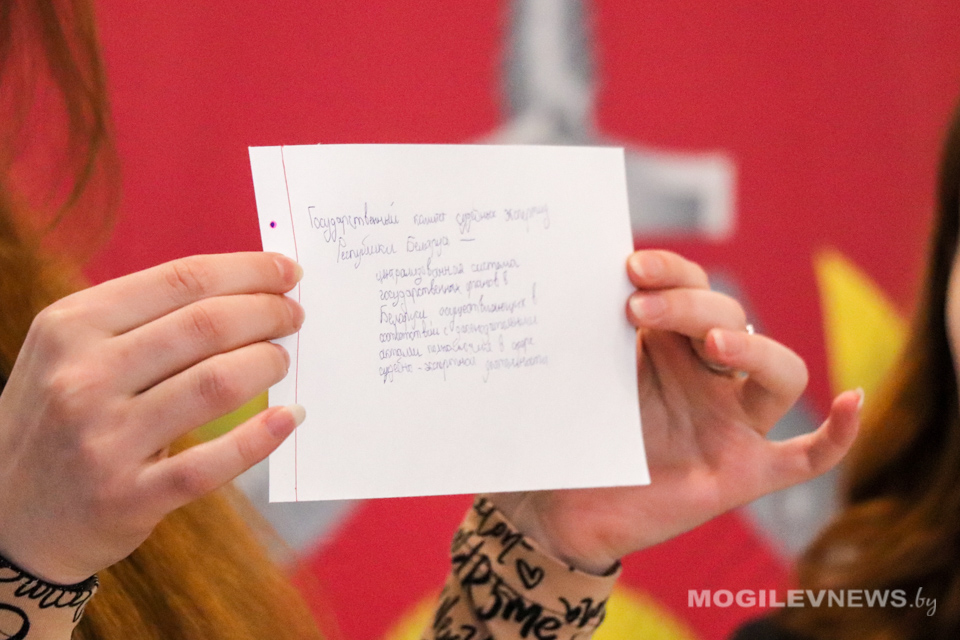 Государственный комитет судебных экспертиз
Республики Беларусь —
централизованная система
государственных органов в
Беларуси осуществляющих в
соответствии с законодательными
актами полномочия в сфере
судебно-экспертной деятельности
MOGILEVNEWS.by